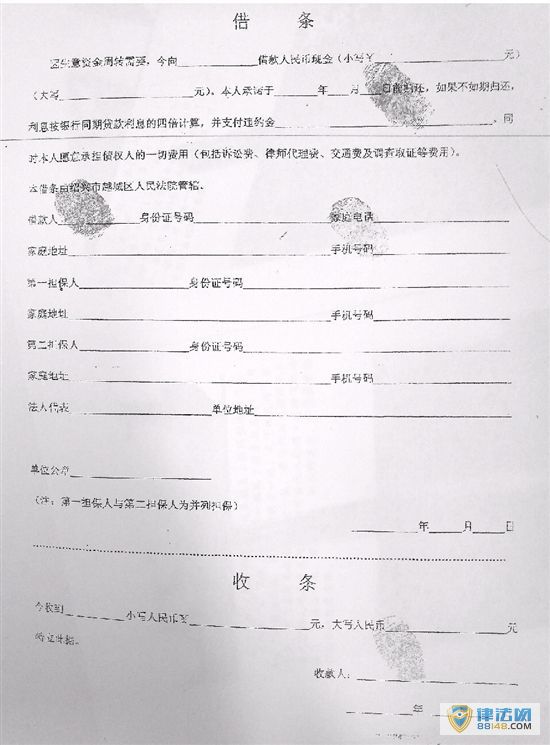 借 条
因生意资金周转需要，今向____________借款人民币现金（小写￥____________元）
（大写____________元）、本人承诺于______年___月___日前归还，如果不如期归还，
利息按银行同期贷款利息的四倍计算，并支付违约金____________、同
时本人愿意承担债权人的一切费用（包括诉讼费、律师代理费、交通费及调查取证等费用）。
本借条由绍兴市越城区人民法院管辖。
借款人____________身份证号码____________家庭电话____________
家庭地址____________手机号码____________
第一担保人____________身份证号码____________
家庭地址____________手机号码____________
第二担保人____________身份证号码____________
家庭地址____________手机号码____________
法人代表____________单位地址____________
单位公章____________
（注：第一担保人与第二担保人为并列担保）
______年____月____日
收 条
今收到________小写人民币￥____________元，大写人民币____________元
特立此据。
收款人：____________
______年
律法网
88148.COM